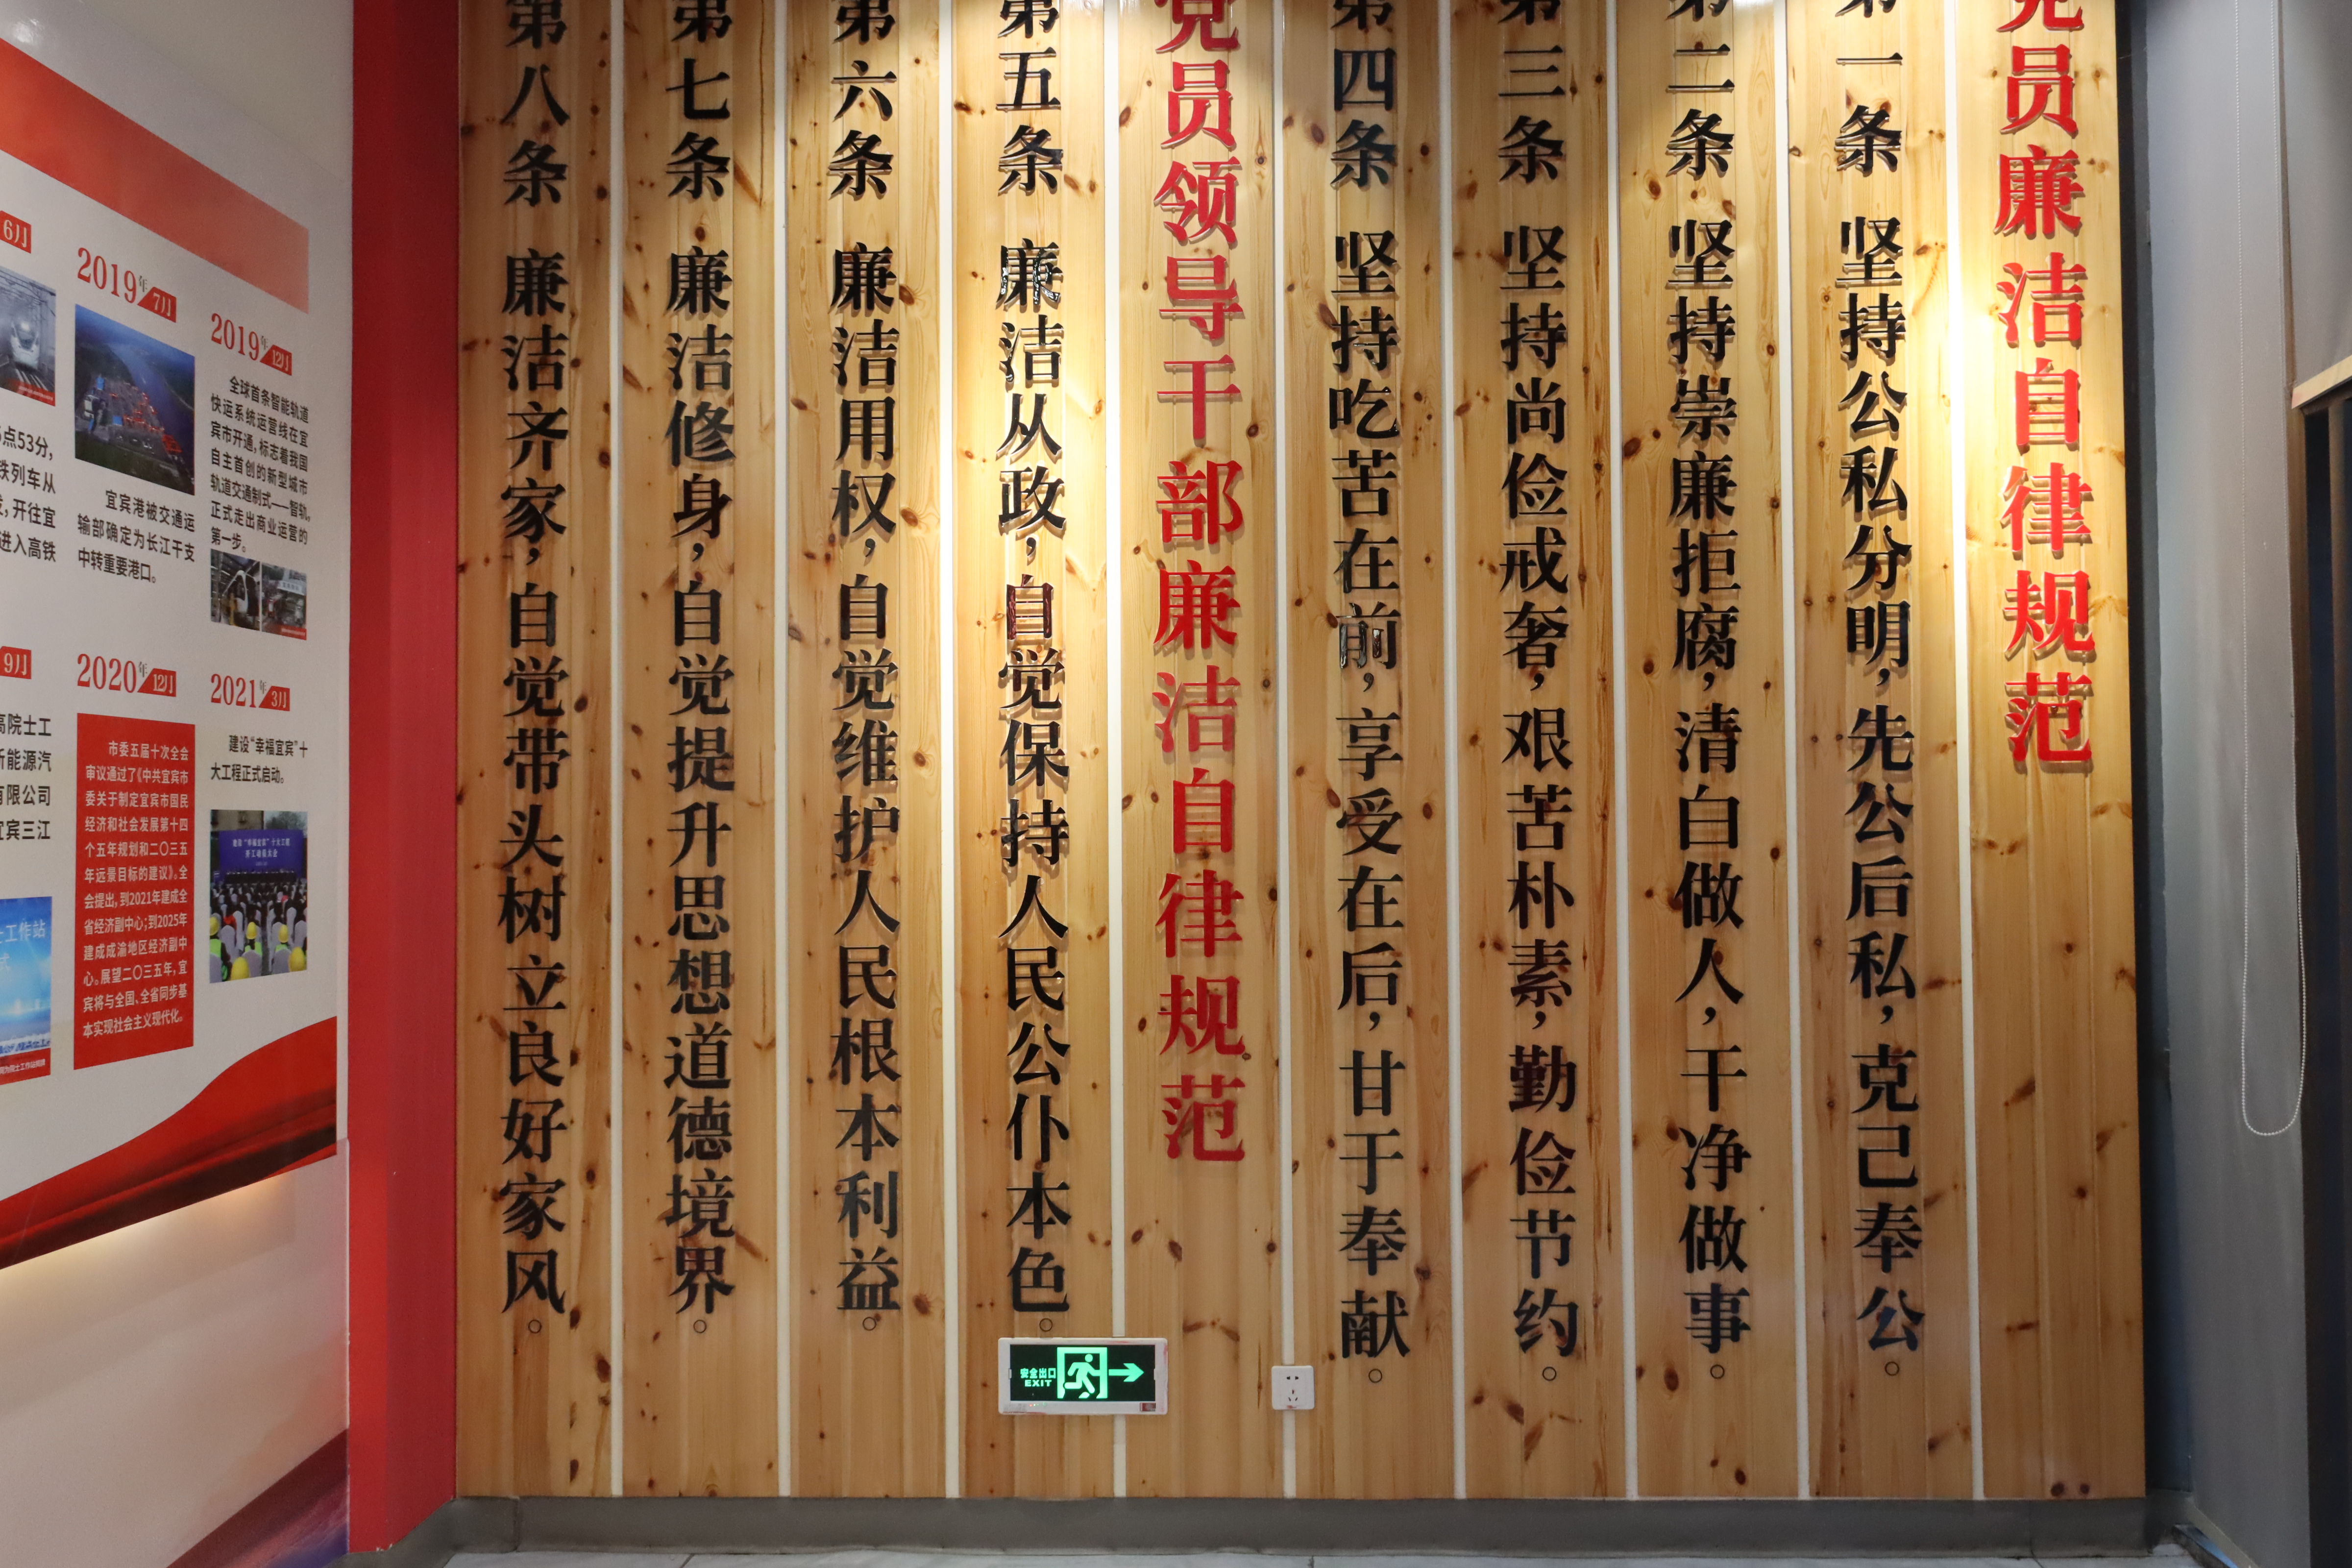 党员廉洁自律规范
第一条 坚持公私分明,先公后私,克己奉公。
第二条 坚持崇廉拒腐,清白做人,干净做事。
第三条 坚持尚俭戒奢,艰苦朴素,勤俭节约。
第四条 坚持吃苦在前,享受在后,甘于奉献。
党员领导干部廉洁自律规范
第五条 廉洁从政,自觉保持人民公仆本色。
第六条 廉洁用权,自觉维护人民根本利益。
第七条 廉洁修身,自觉提升思想道德境界。
第八条 廉洁齐家,自觉带头树立良好家风。
安全出口
EXIT
6月
点53分,
铁列车从
,开往宜
进入高铁
2019年7月
宜宾港被交通运
输部确定为长江干支
中转重要港口。
2019年12月
全球首条智能轨道
快运系统运营线在宜
宾市开通,标志着我国
自主首创的新型城市
轨道交通制式——智轨,
正式走出商业运营的
第一步。
9月
高院士工
新能源汽
有限公司
宜宾三江
士工作站
式
2020年12月
市委五届十次全会
审议通过了《中共宜宾市
委关于制定宜宾市国民
经济和社会发展第十四
个五年规划和二〇三五
年远景目标的建议》。全
会提出,到2021年建成全
省经济副中心;到2025年
建成成渝地区经济副中
心。展望二〇三五年,宜
宾将与全国、全省同步基
本实现社会主义现代化。
2021年3月
建设“幸福宜宾”十
大工程正式启动。